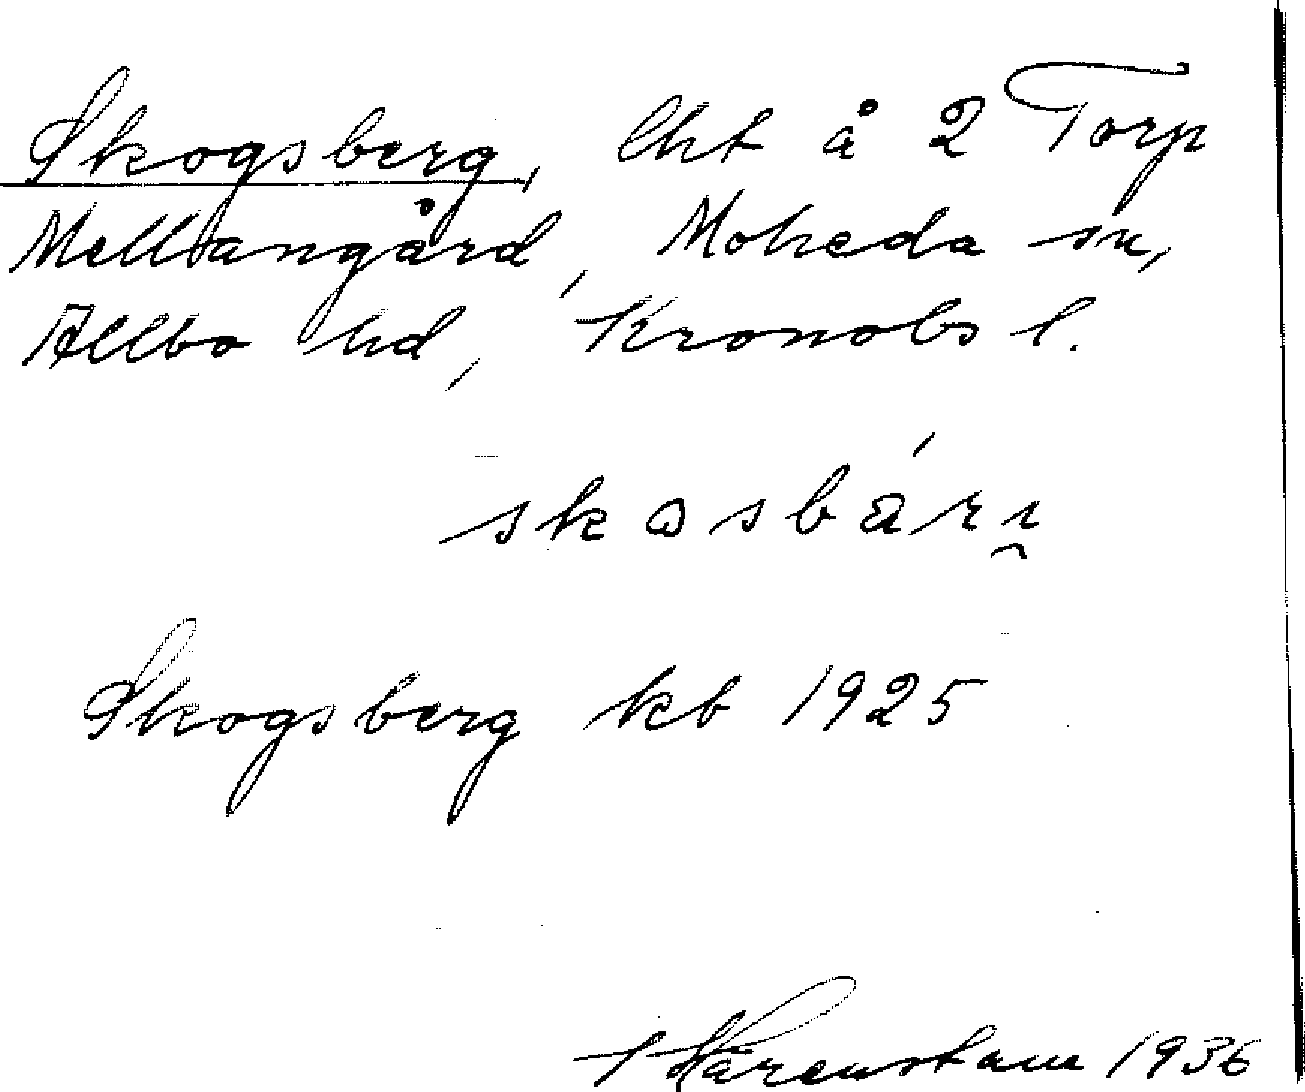 Skogsberg, lht å 2 Torp
Mellangård, Moheda sn,
Allbo hd, Kronobs l.
skosbárı̯
Skogsberg kb 1925
Härenstam 1936